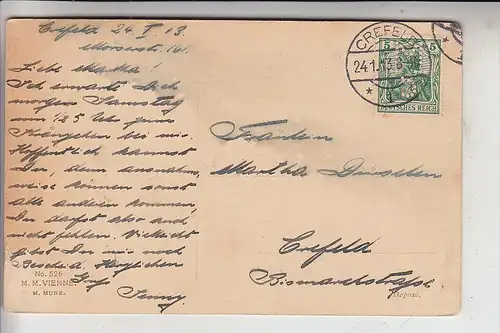 Crefeld 24 I 13.
Moerserstr. 161.
Liebe Martha!
Ich erwarte Dich
morgen Samstag
um 1/2 5 Uhr zum
Kränzchen bei mir.
Hoffentlich kannst
Du, denn ausnahms
weise können sonst
alle anderen kommen,
Du darfst also auch
nicht fehlen. Vielleicht
gibst Du mir noch
Bescheid. Herzlichen
Gruß
Jenny.
No. 526
M. M. VIENNE.
M. MUNK.
CREFELD
24.1.13.8
5 5
DEUTSCHES REICH
Fräulein
Martha
Crefeld
Bismarckstraße
Déposé.